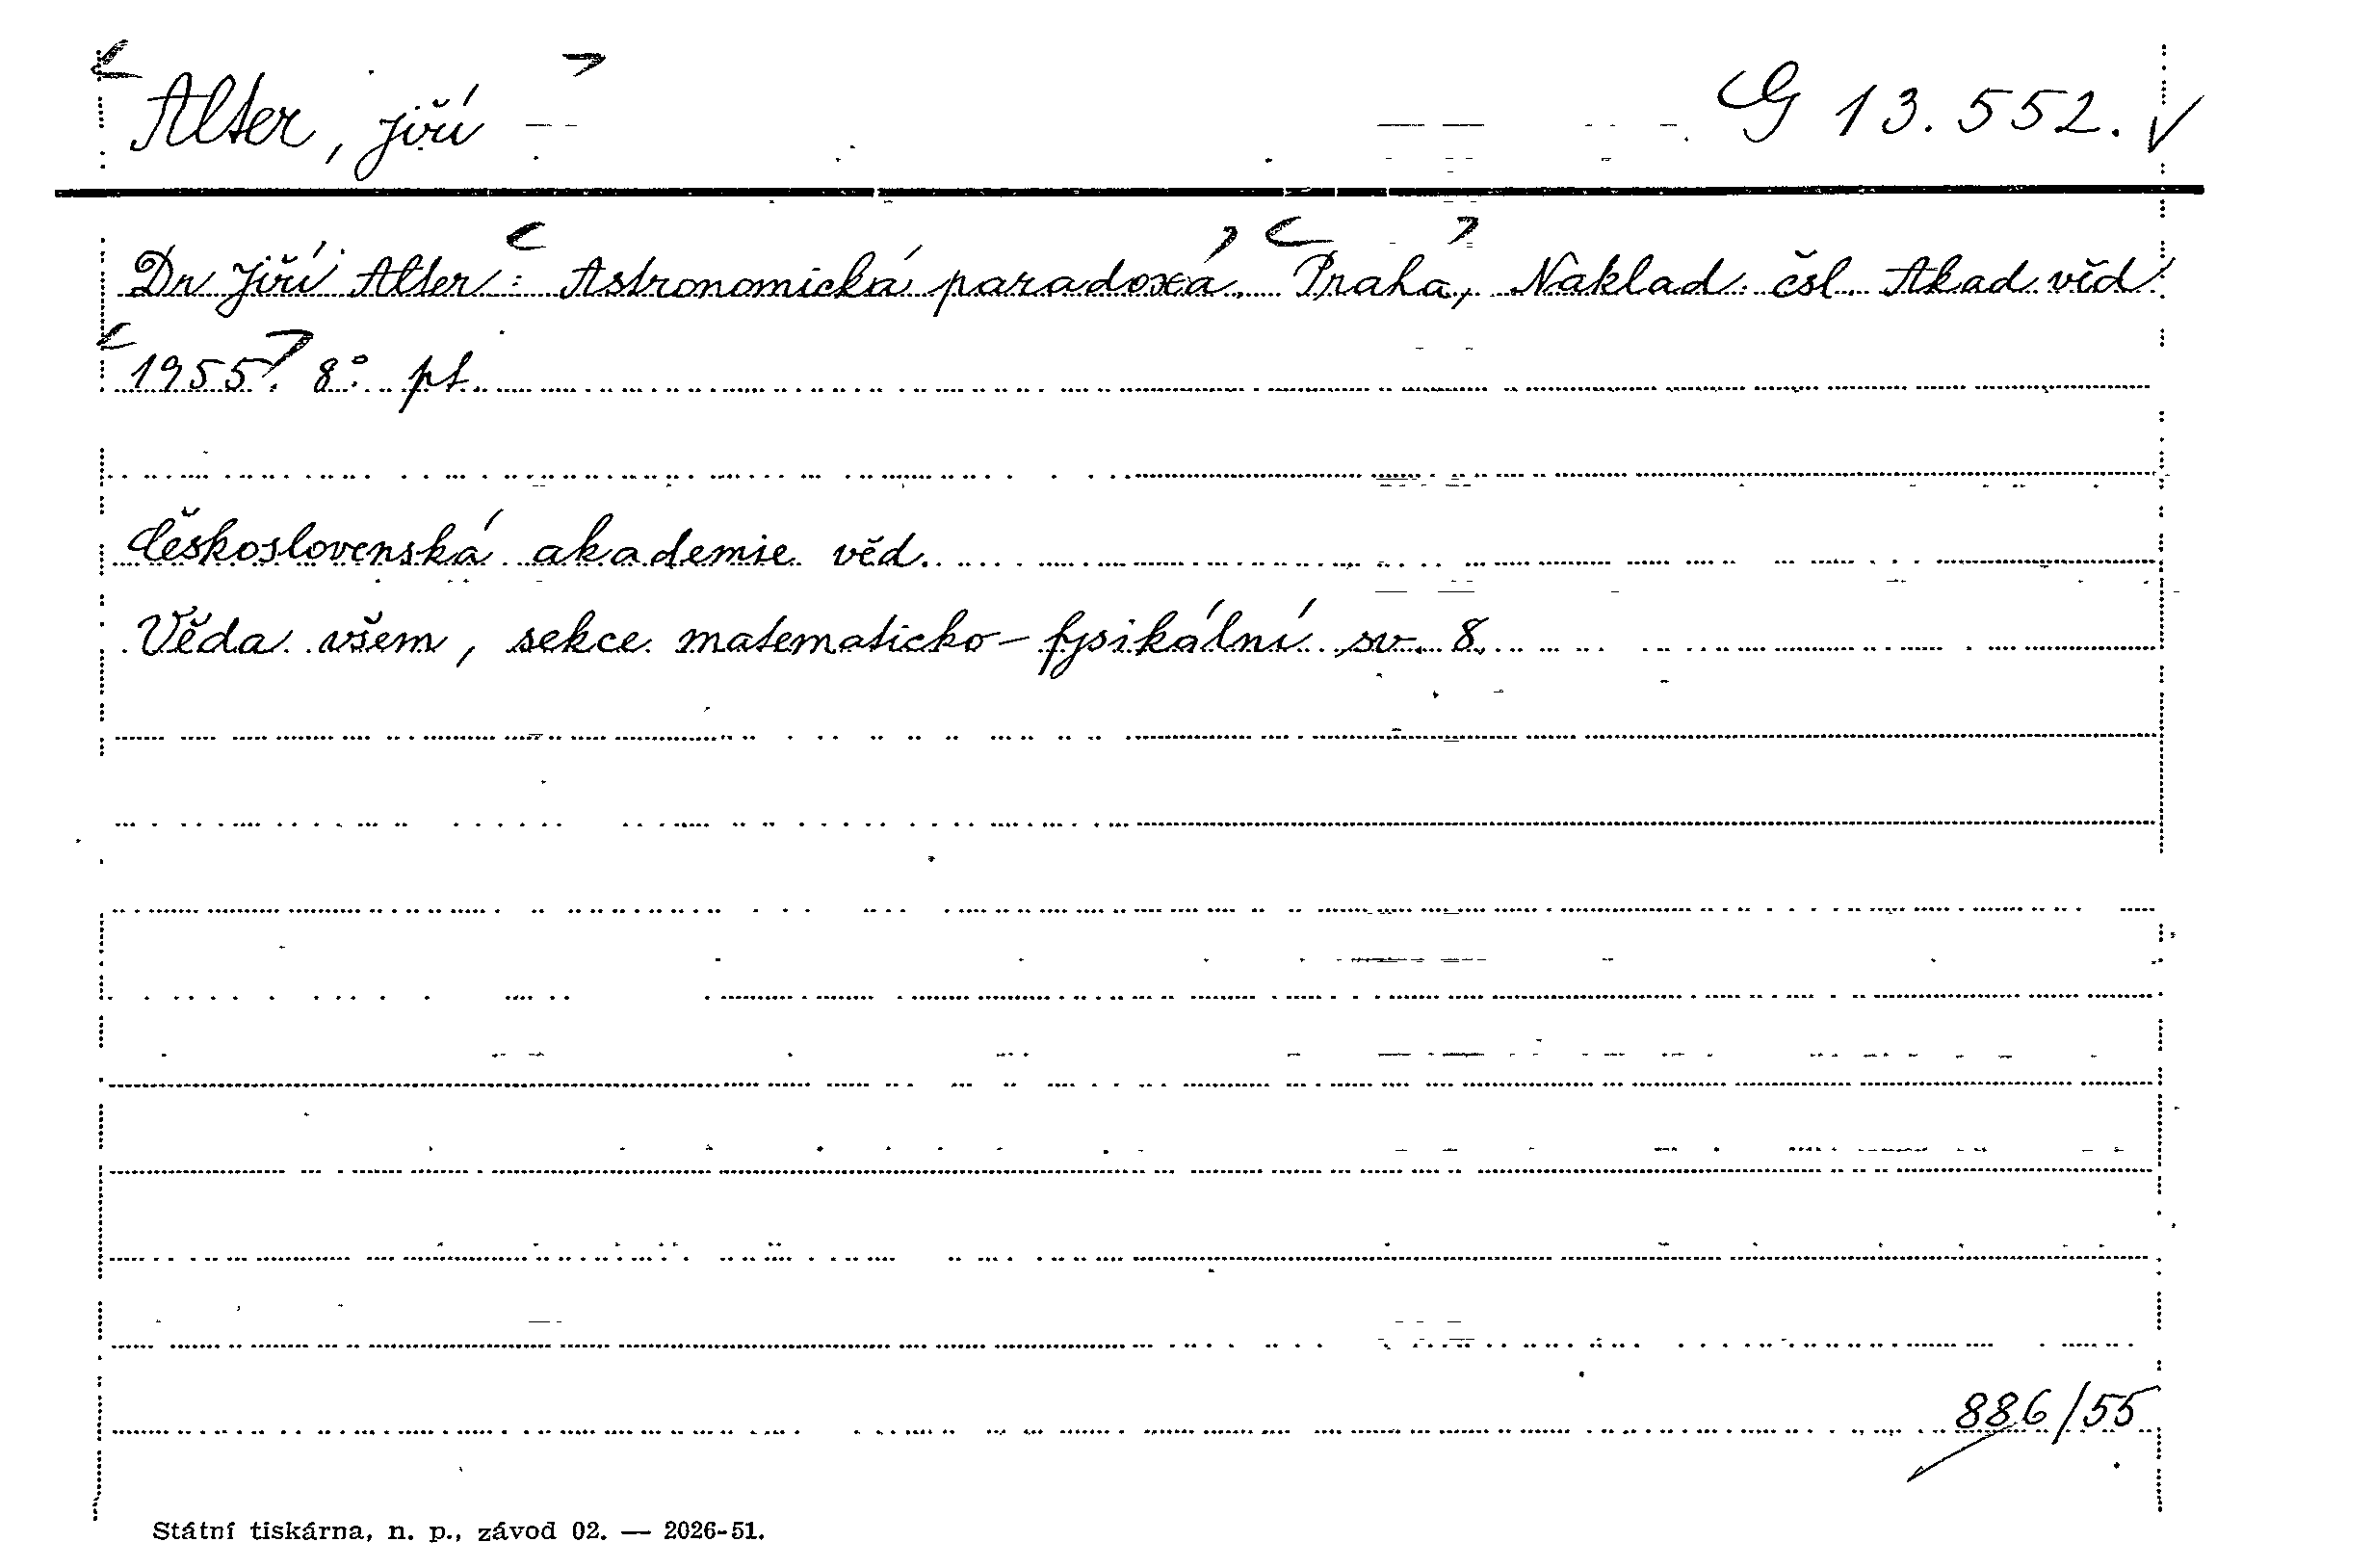 Alter, Jiří G 13.552.
Dr Jiří Alter: Astronomická paradoxa. Praha, Naklad. čsl. Akad věd
1955. 8° pt.
Československá akademie věd.
Věda všem, sekce matematicko-fysikální sv. 8.
886/55
Státní tiskárna, n. p., závod 02. — 2026-51.